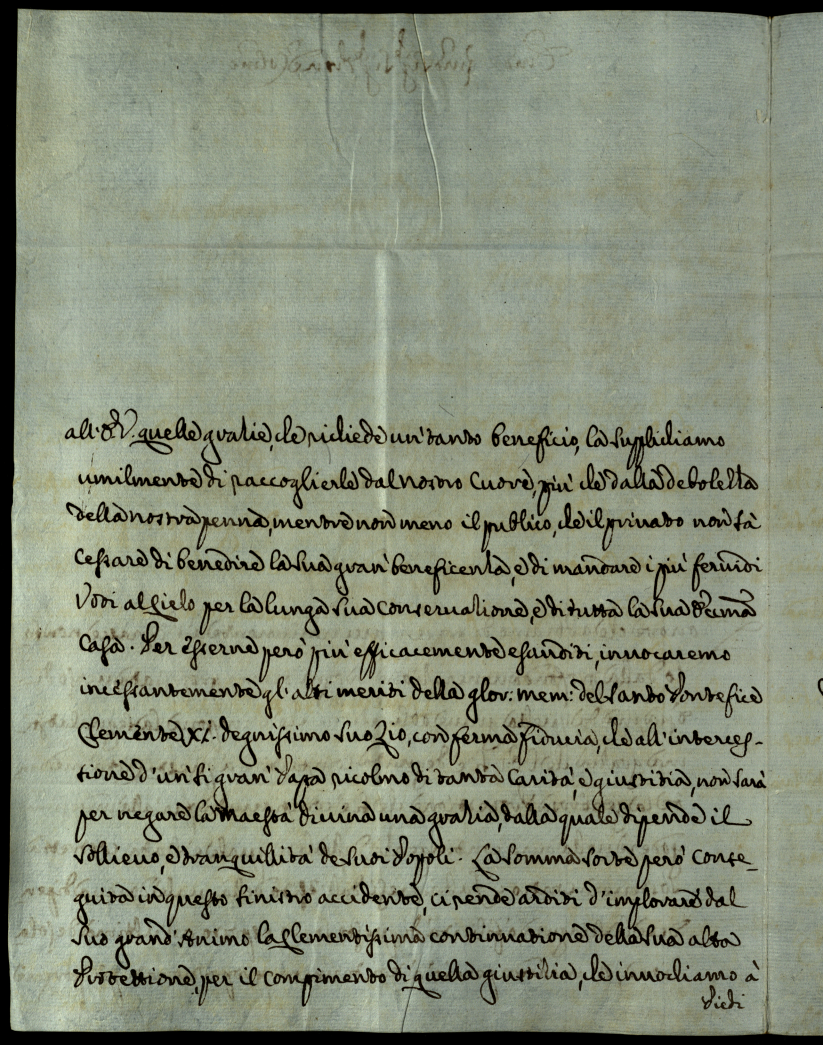 all' E.V. quelle gratie, che richiede un' tanto beneficio, la supplichiamo
umilmente di raccoglierle dal nostro Cuore, più che dalla debolezza
della nostra penna, mentre non meno il publico, che il privato non sà
cessare di benedire la sua gran' beneficenza, e di mandare i più fervidi
Voti al Cielo per la lunga sua conservatione, e di tutta la sua Ecc.ma
Casa. Per esserne però più efficacemente esauditi, invocaremo
incessantemente gl' alti meriti della glor: mem: del Santo Pontefice
Clemente XI. degnissimo suo Zio, con ferma fiducia, che all' interces-
sione d' un' si gran' Papa ricolmo di tanta Carità, e giustitia, non sarà
per negare la Maestà divina una gratia, dalla quale dipende il
sollievo, e tranquillità de suoi Popoli. La somma sorte però conse-
guita in questo sinistro accidente, ci rende arditi d' implorare dal
suo grand' Animo la Clementissima continuatione della sua alta
Protettione, per il compimento di quella giustitia, che invochiamo à
Piedi